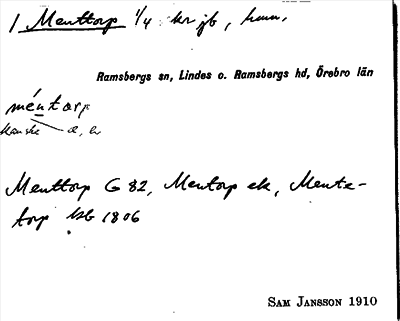 1 Menttorp 1/4 kr jb, hmn.
Ramsbergs sn, Lindes o. Ramsbergs hd, Örebro län
méntorp
kanske
Menttorp G 82, Mentorp ek, Mente-
torp hsb 1806
SAM JANSSON 1910